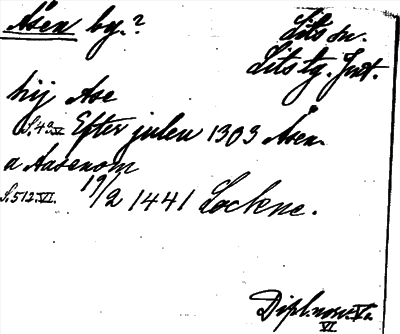 Åsen by.?
Lits sn.
Lits tg. Jmt.
hij Ase
S.43.V. Efter julen 1303 Åsen.
a Aasenom
S.512.VI. 19/2 1441 Lockne.
Dipl. norv. V.
VI.